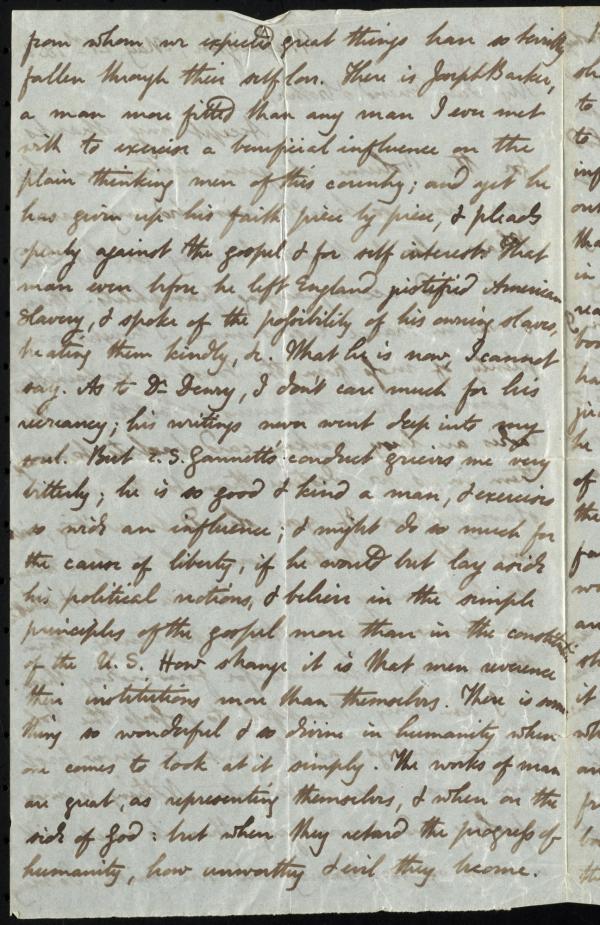 from whom we expected great things have so terribly
fallen through their self love. There is Joseph Barker,
a man more fitted than any man I ever met
with to exercise a beneficial influence on the
plain thinking men of this country; and yet he
has given up his faith piece by piece, & pleads
openly against the gospel & for self interest. That
man even before he left England justified American
slavery, & spoke of the possibility of his owning slaves,
treating them kindly, &c. What he is now, I cannot
say. As to Dr. Dewey, I don't care much for his
recreancy; his writings never went deep into my
soul. But E. S. Gannett's conduct grieves me very
bitterly; he is so good & kind a man, & exercises
so wide an influence; & might do so much for
the cause of liberty, if he would but lay aside
his political notions, & believe in the simple
principles of the gospel more than in the constitution
of the U. S. How strange it is that men reverence
their institutions more than themselves. There is some
thing so wonderful & so divine in humanity when
one comes to look at it simply. The works of man
are great, as representing themselves, & when on the
side of God: but when they retard the progress of
humanity, how unworthy & evil they become.